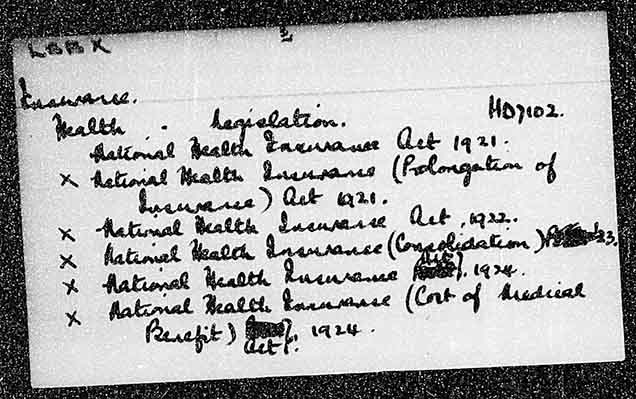 LBBX
Insurance.
Health - Legislation. HD7102.
National Health Insurance Act 1921.
x National Health Insurance (Prolongation of
Insurance) Act 1921.
x National Health Insurance Act, 1922.
x National Health Insurance (Consolidation) 23.
x National Health Insurance Act, 1924.
x National Health Insurance (Cost of Medical
Benefit) 1924.
Act